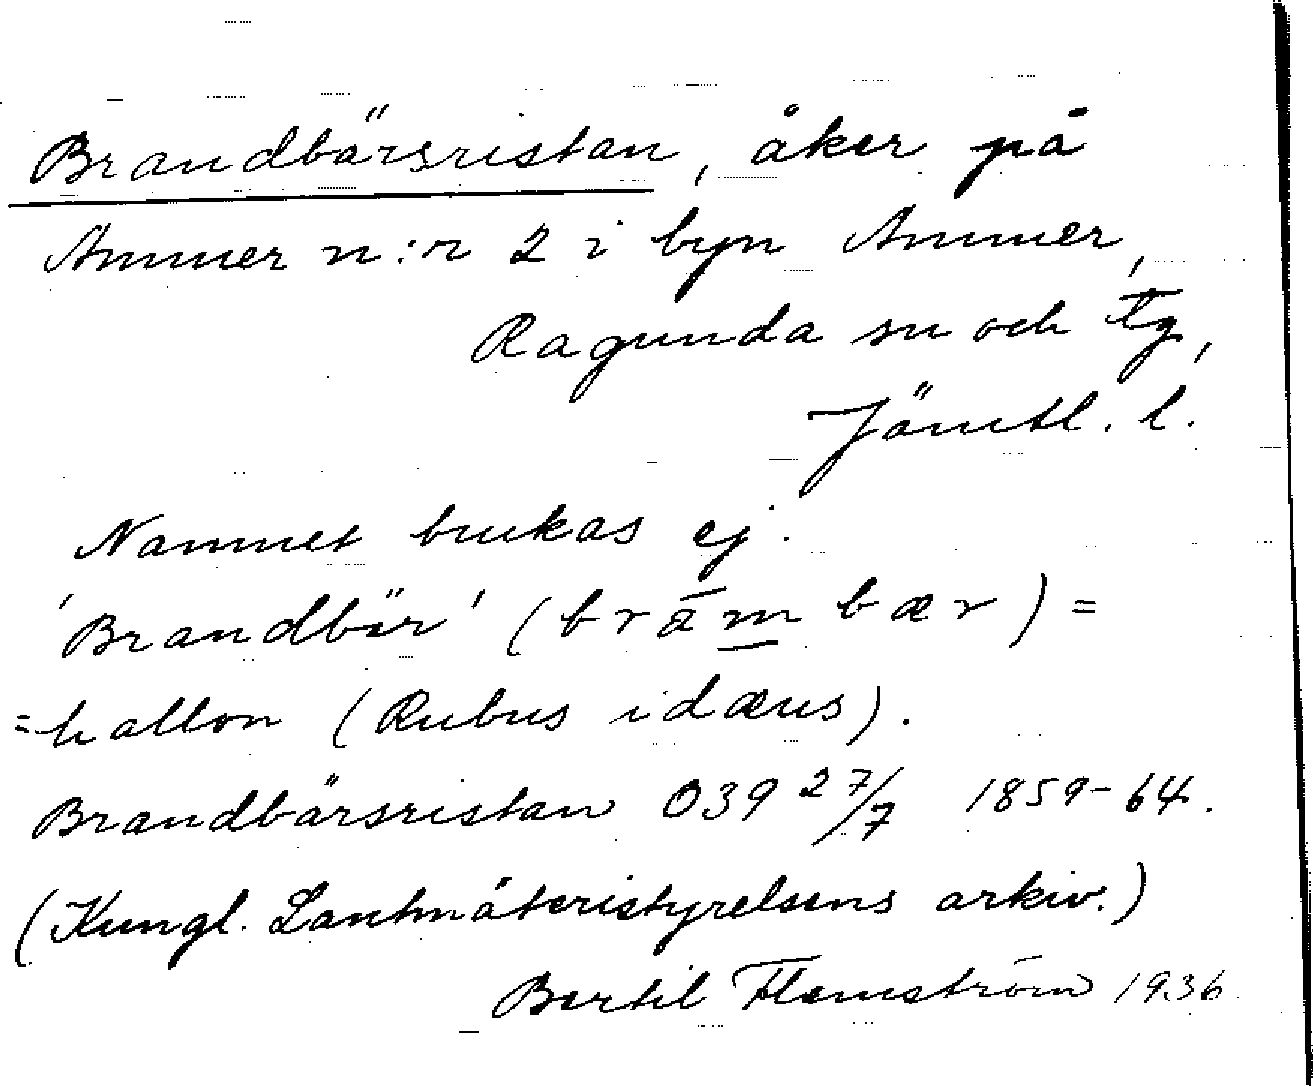 Brandbärsristan, åker på
Ammer n:r 2 i byn Ammer,
Ragunda sn och tg,
Jämtl. l.
Namnet brukas ej.
'Brandbär' (brām bær) =
= hallon (Rubus idæus).
Brandbärsristan O39 27/7 1859-64.
(Kungl. Lantmäteristyrelsens arkiv.)
Bertil Flemström 1936.